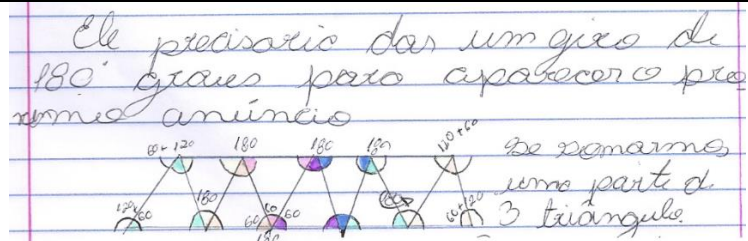 Ele precisaria dar um giro de
180° graus para aparecer o pro
ximo anúncio
60+120 180 180 180 120+60 se somarmos
120+60 180 60 60 60 180 60+120 uma parte d
180 3 triângulo